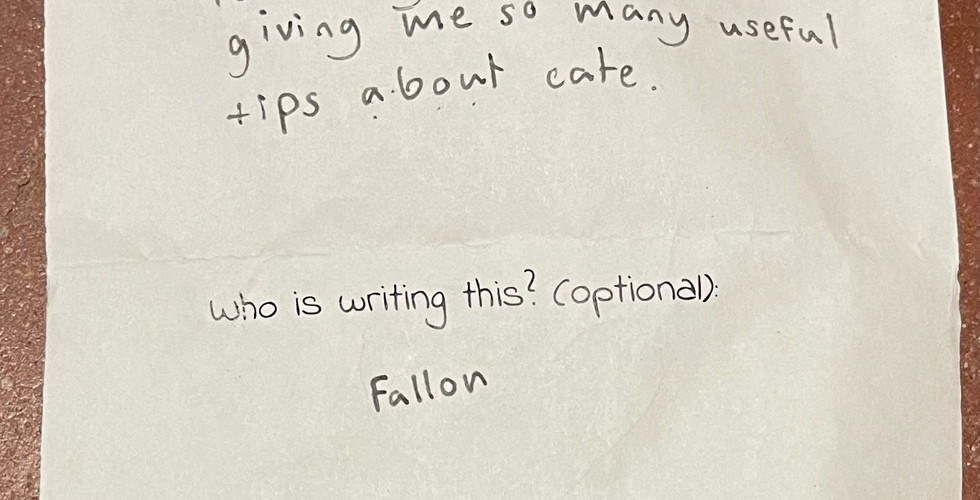 giving me so many useful
tips about cate.
Who is writing this? (optional):
Fallon